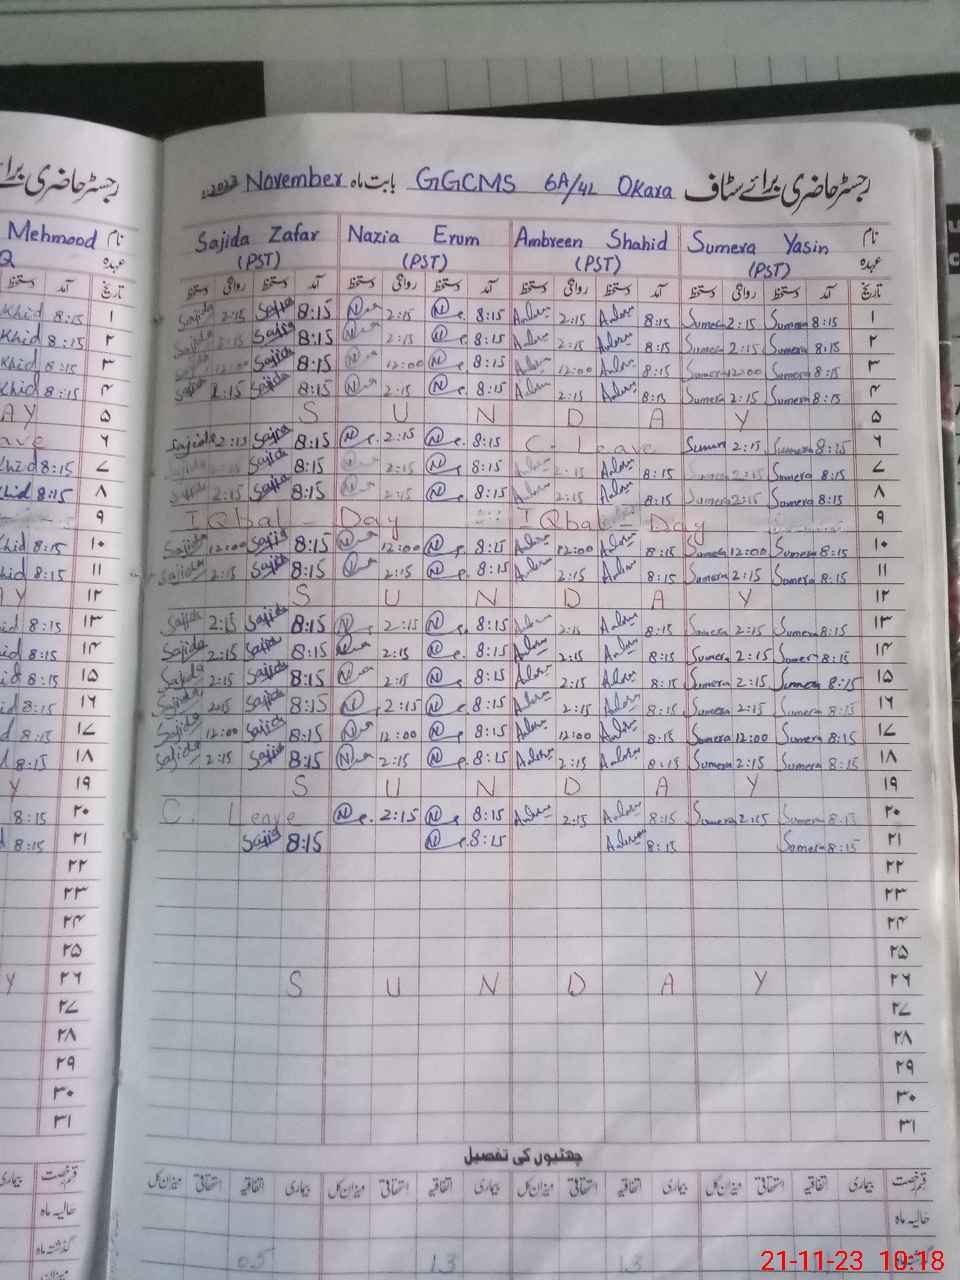 رجسٹر حاضری برائے سٹاف GGCMS 6A/4L Okara بابت ماہ November 2023
رجسٹر حاضری برائے
Mehmood نام
نام Sumera Yasin Ambreen Shahid Nazia Erum Sajida Zafar
عہدہ (PST) (PST) (PST) (PST)
تاریخ آمد دستخط روانگی دستخط آمد دستخط روانگی دستخط آمد دستخط روانگی دستخط آمد دستخط روانگی دستخط
Khid 8:15 Sajida 2:15 Sajida 8:15 2:15 8:15 2:15 8:15 Sumera 2:15 Sumera 8:15 ۱
Khid 8:15 Sajida 2:15 Sajida 8:15 2:15 8:15 2:15 8:15 Sumera 2:15 Sumera 8:15 ۲
Khid 8:15 12:00 Sajida 8:15 12:00 8:15 12:00 8:15 Sumera 12:00 Sumera 8:15 ۳
Khid 8:15 Sajida 2:15 Sajida 8:15 2:15 8:15 2:15 8:15 Sumera 2:15 Sumera 8:15 ۴
AY S U N D A Y ۵
ave Sajida 2:15 Sajida 8:15 2:15 8:15 C. Leave Sumera 2:15 Sumera 8:15 ۶
Khid 8:15 Sajida 8:15 2:15 8:15 2:15 8:15 2:15 Sumera 8:15 ۷
Khid 8:15 Sajida 2:15 Sajida 8:15 2:15 8:15 2:15 8:15 Sumera 2:15 Sumera 8:15 ۸
IQbal - Day IQbal - Day ۹
Khid 8:15 Sajida 12:00 Sajida 8:15 12:00 8:15 12:00 8:15 Sumera 12:00 Sumera 8:15 ۱۰
hid 8:15 Sajida 2:15 Sajida 8:15 2:15 8:15 2:15 8:15 Sumera 2:15 Sumera 8:15 ۱۱
AY S U N D A Y ۱۲
id 8:15 Sajida 2:15 Sajida 8:15 2:15 8:15 2:15 8:15 Sumera 2:15 Sumera 8:15 ۱۳
id 8:15 Sajida 2:15 Sajida 8:15 2:15 8:15 2:15 8:15 Sumera 2:15 Sumera 8:15 ۱۴
id 8:15 Sajida 2:15 Sajida 8:15 2:15 8:15 2:15 8:15 Sumera 2:15 Sumera 8:15 ۱۵
id 8:15 Sajida 2:15 Sajida 8:15 2:15 8:15 2:15 8:15 Sumera 2:15 Sumera 8:15 ۱۶
d 8:15 Sajida 12:00 Sajida 8:15 12:00 8:15 12:00 8:15 Sumera 12:00 Sumera 8:15 ۱۷
8:15 Sajida 2:15 Sajida 8:15 2:15 8:15 2:15 8:15 Sumera 2:15 Sumera 8:15 ۱۸
Y S U N D A Y ۱۹
8:15 C. Leave 2:15 8:15 2:15 8:15 Sumera 2:15 Sumera 8:15 ۲۰
8:15 Sajid 8:15 8:15 8:15 Sumera 8:15 ۲۱
۲۲
۲۳
۲۴
۲۵
Y S U N D A Y ۲۶
۲۷
۲۸
۲۹
۳۰
۳۱
چھٹیوں کی تفصیل
قسم رخصت بیماری اتفاقیہ استحقاقی میزان کل بیماری اتفاقیہ استحقاقی میزان کل بیماری اتفاقیہ استحقاقی میزان کل بیماری اتفاقیہ استحقاقی میزان کل
حالیہ ماہ
گذشتہ ماہ 05 13 13
میزان
21-11-23 10:18